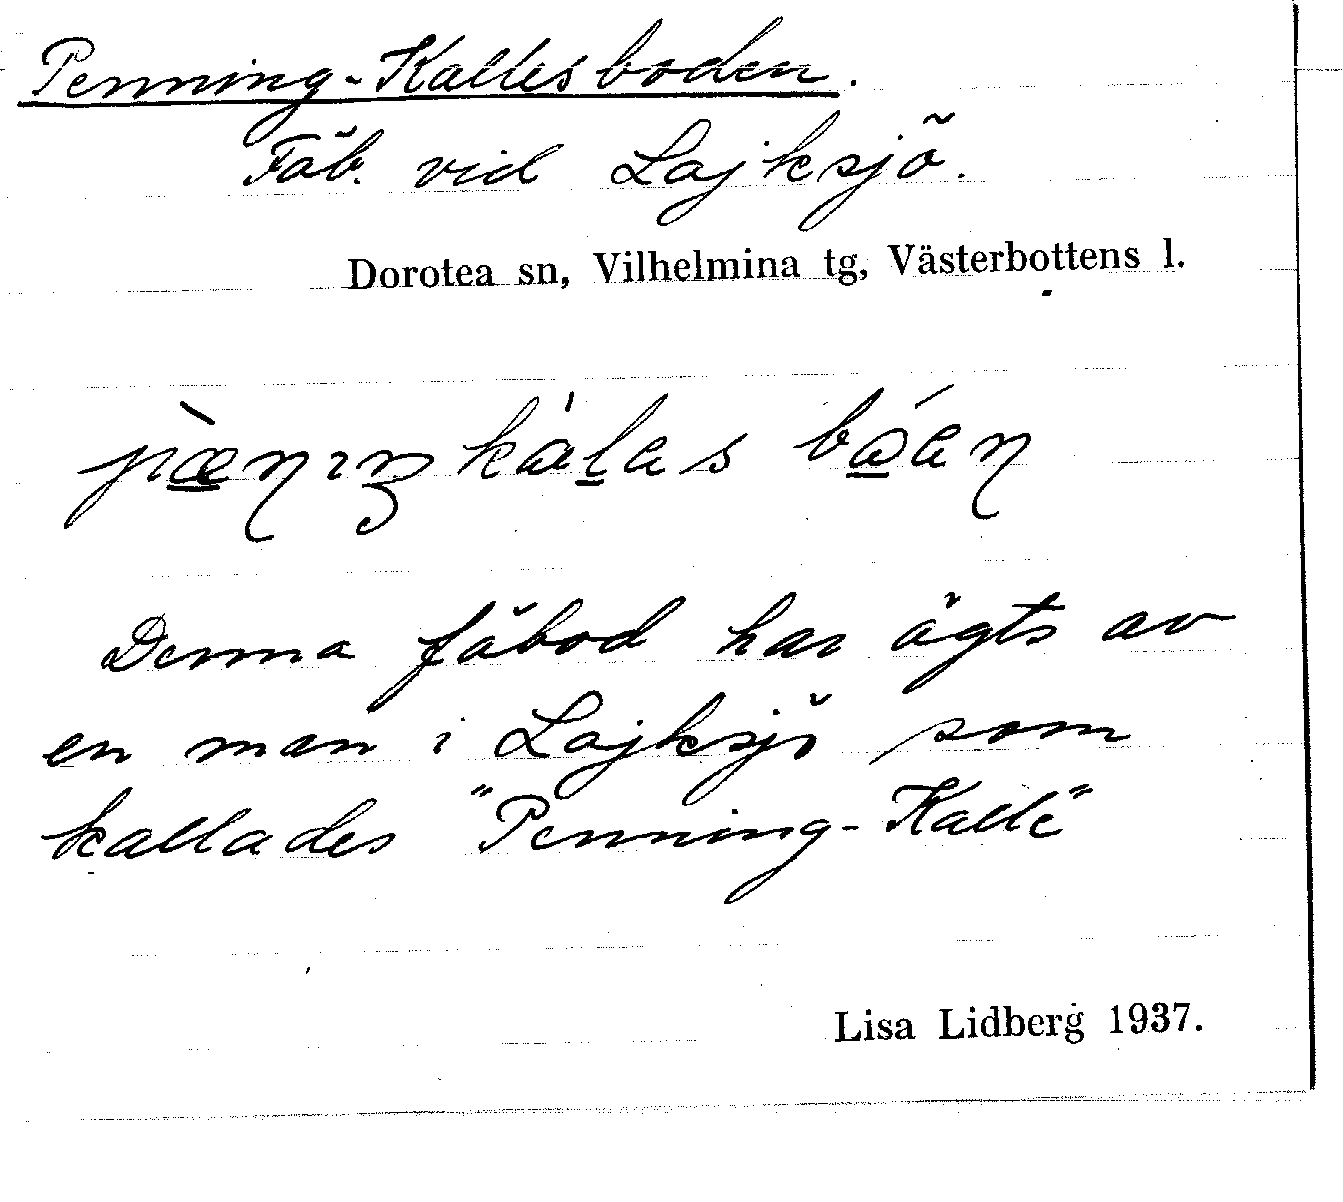 Penning-Kallesboden.
Fäb. vid Lajksjö.
Dorotea sn, Vilhelmina tg, Västerbottens l.
Denna fäbod har ägts av
en man i Lajksjö som
kallades "Penning-Kalle"
Lisa Lidberg 1937.